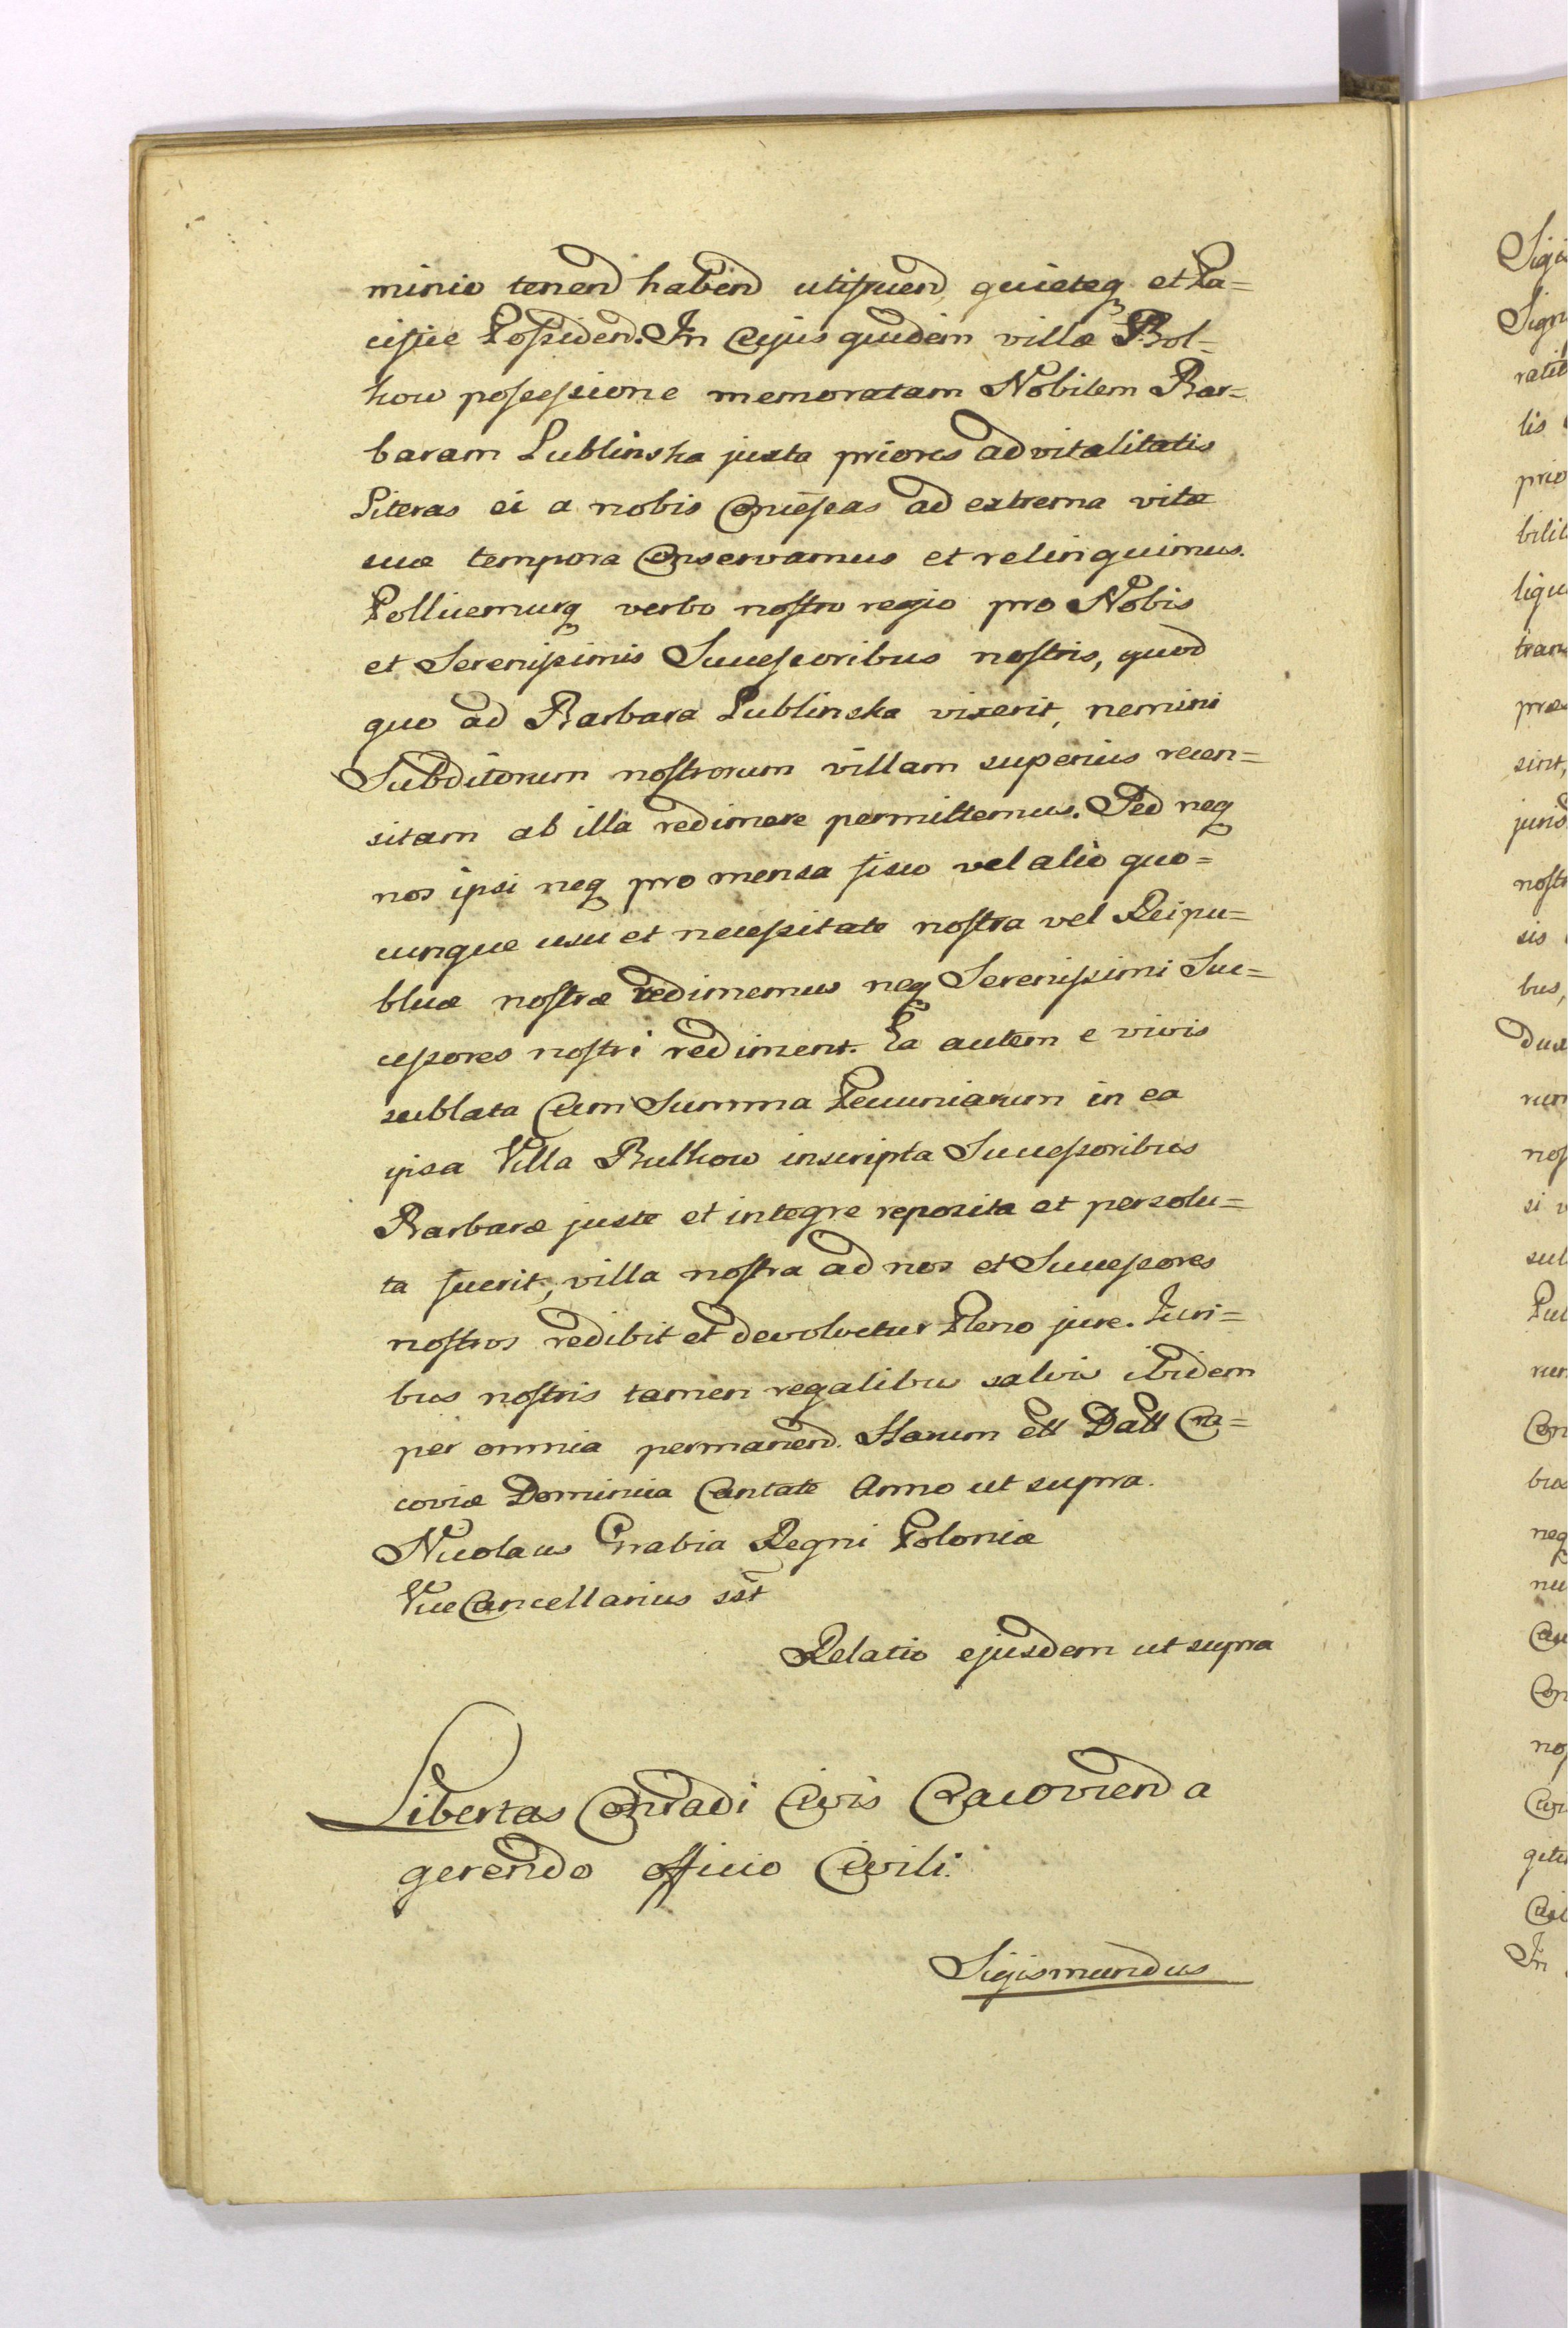 minio tenend habend utifruend quieteq et Pa=
cifice Possidend. In Cujus quidem villæ Bol=
kow possessione memoratam Nobilem Bar=
baram Lublinska juxta priores advitalitatis
Literas ei a nobis Concessas ad extrema vitæ
suæ tempora Conservamus et relinquimus.
Pollicemurq verbo nostro regio pro Nobis
et Serenissimis Successoribus nostris, quod
quo ad Barbara Lublinska vixerit, nemini
Subditorum nostrorum villam superius recen=
sitam ab illa redimere permittemus. Sed neq
nos ipsi neq pro mensa fisco vel alio quo=
cunque usu et necessitate nostra vel Reipu=
blicæ nostræ redimemus neq Serenissimi Suc=
cessores nostri rediment. Ea autem e vivis
sublata Cum Summa Pecuniarum in ea
ipsa Villa Bulkow inscripta Successoribus
Barbaræ juste et integre reposita et persolu=
ta fuerit, villa nostra ad nos et Successores
nostros redibit et devolvetur Pleno jure. Juri=
bus nostris tamen regalibus salvis ibidem
per omnia permanend. Harum ett Datt Cra=
coviæ Dominica Cantate Anno ut supra.
Nicolaus Crabia Regni Poloniæ
ViceCancellarius sst
Relatio ejusdem ut supra
Libertas Conradi Civis Cracoviend a
gerendo officio Civili.
Sigismundus